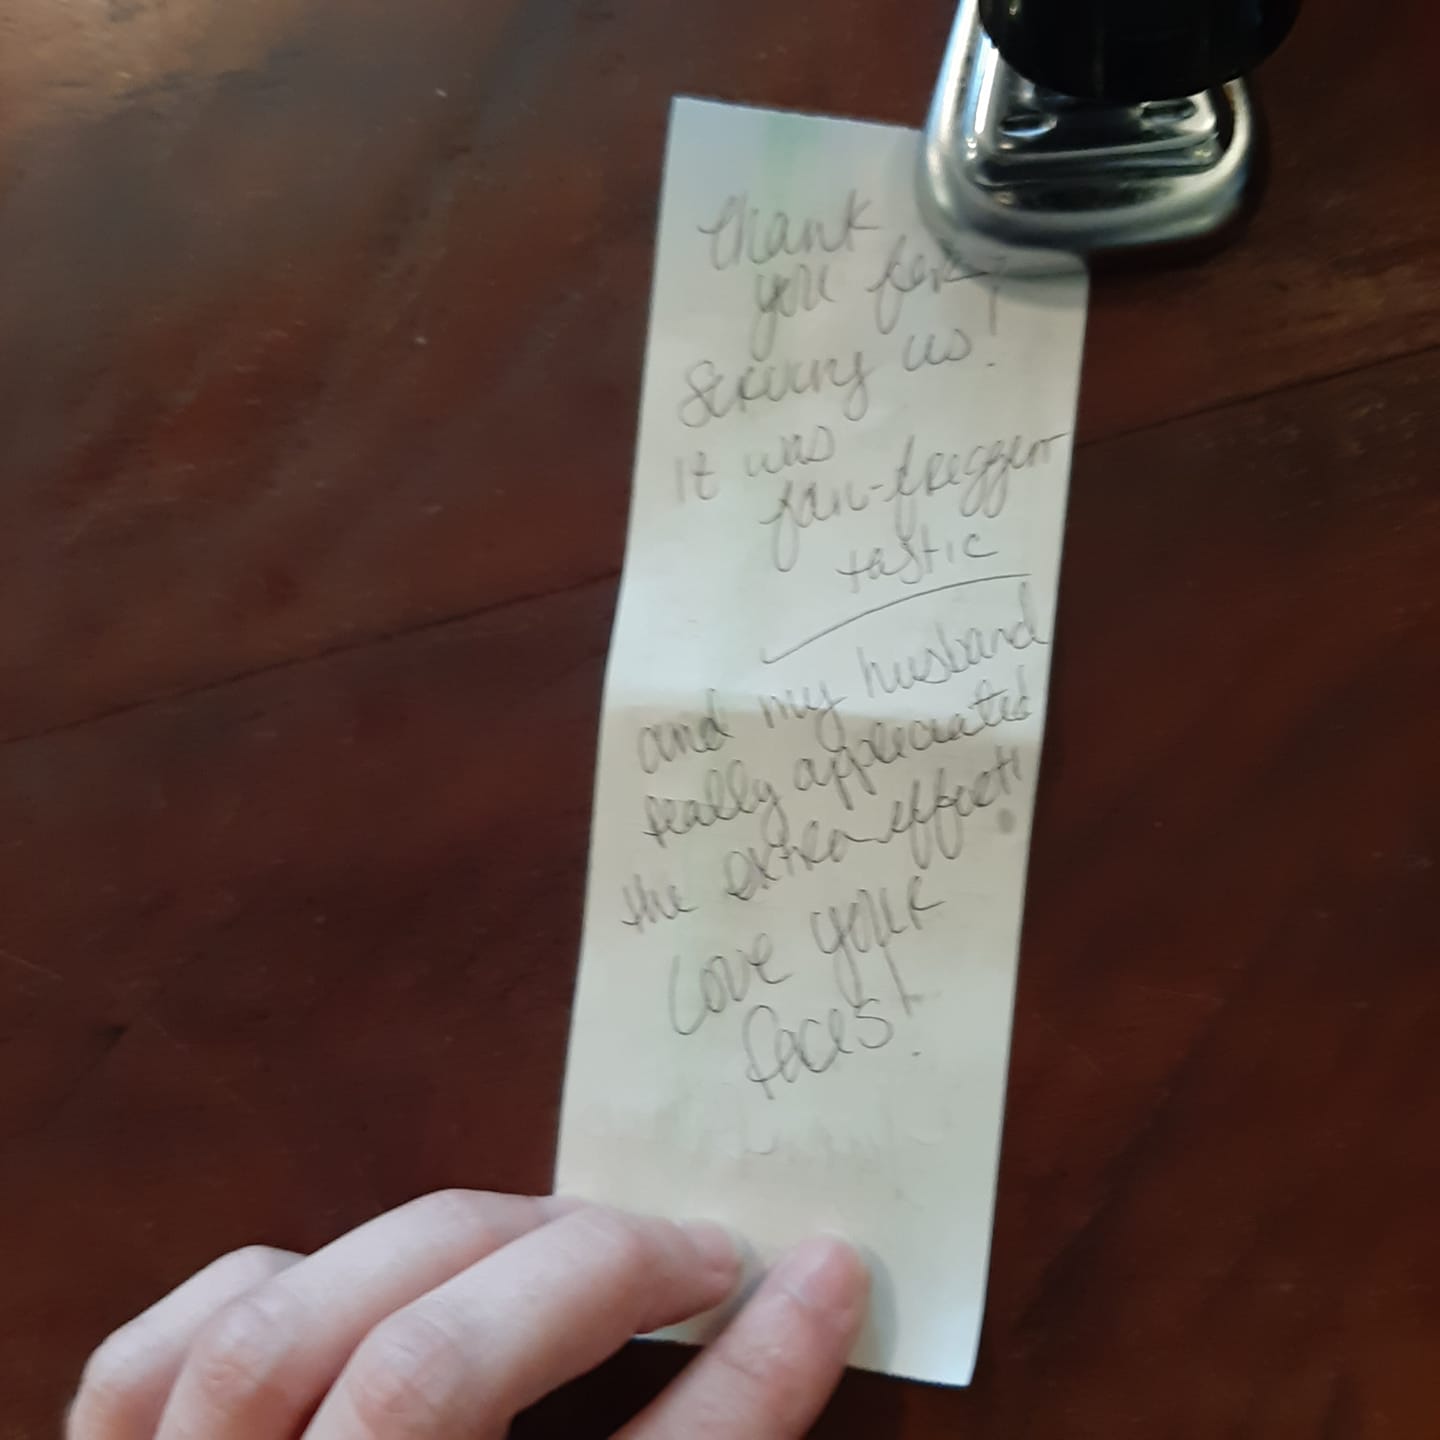 Thank
you for
Serving us!
it was
fan-freggin
tastic
and my husband
really appreciated
the extra effort!
Love your
faces!